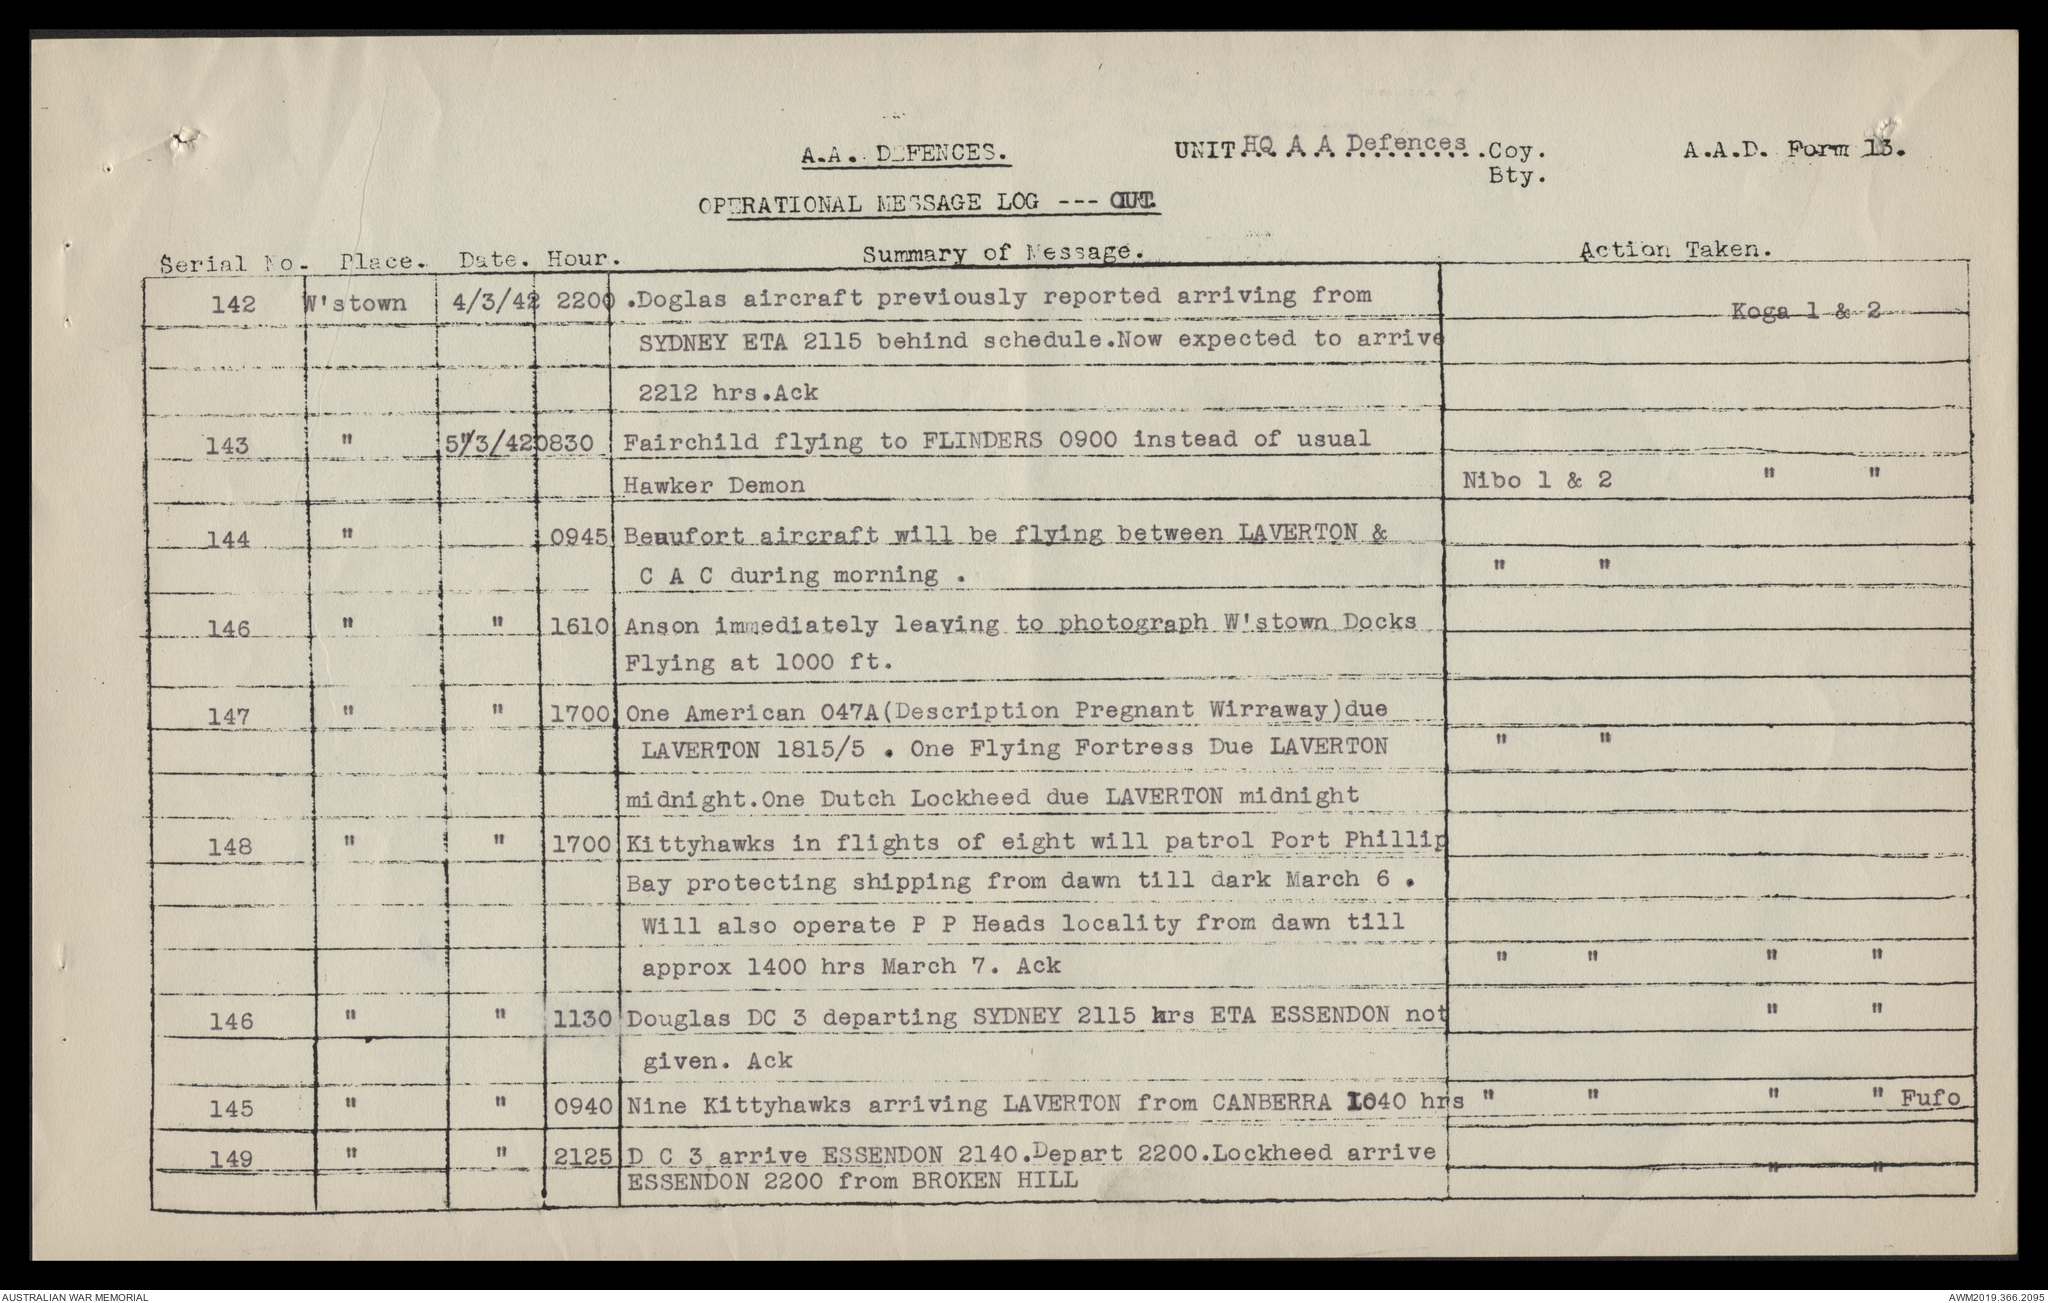 A.A. DEFENCES. UNIT HQ A A Defences Coy. A.A.D. Form 13.
Bty.
OPERATIONAL MESSAGE LOG --- OUT.
Serial No. Place. Date. Hour. Summary of Message. Action Taken.
142 W'stown 4/3/42 2200 .Doglas aircraft previously reported arriving from Koga 1 & 2
SYDNEY ETA 2115 behind schedule.Now expected to arrive
2212 hrs.Ack
143 " 5/3/42 0830 Fairchild flying to FLINDERS 0900 instead of usual
Hawker Demon Nibo 1 & 2 " "
144 " 0945 Beaufort aircraft will be flying between LAVERTON &
C A C during morning . " "
146 " " 1610 Anson immediately leaving to photograph W'stown Docks
Flying at 1000 ft.
147 " " 1700 One American 047A(Description Pregnant Wirraway)due
LAVERTON 1815/5 . One Flying Fortress Due LAVERTON " "
midnight.One Dutch Lockheed due LAVERTON midnight
148 " " 1700 Kittyhawks in flights of eight will patrol Port Phillip
Bay protecting shipping from dawn till dark March 6 .
Will also operate P P Heads locality from dawn till
approx 1400 hrs March 7. Ack " " " "
146 " " 1130 Douglas DC 3 departing SYDNEY 2115 hrs ETA ESSENDON not " "
given. Ack
145 " " 0940 Nine Kittyhawks arriving LAVERTON from CANBERRA 1040 hrs " " " " Fufo
149 " " 2125 D C 3 arrive ESSENDON 2140.Depart 2200.Lockheed arrive
ESSENDON 2200 from BROKEN HILL " "
AUSTRALIAN WAR MEMORIAL AWM2019.366.2095